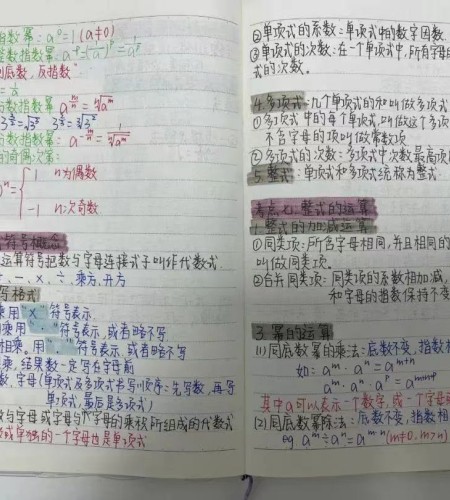 指数幂: a⁰=1(a≠0)
整数指数幂 a⁻ᵖ=(1/a)ᵖ=1/aᵖ
底数, 反指数"
数指数幂 a^(m/n)=ⁿ√aᵐ
数指数幂: a^(-m/n)=1/ⁿ√aᵐ
的奇偶次幂:
)ⁿ={ 1 n为偶数
-1 n为奇数
符号概念
运算符号把数与字母连接式子叫作代数式
-、×、÷、乘方、开方
写格式
乘用"×"符号表示
相乘用"·"符号表示, 或者略不写
相乘。用"·"符号表示, 或者略不写
乘, 结果数一定写在字母前
数, 字母(单项式及多项式书写顺序: 先写数, 再写
单项式, 最后是多项式)
数与字母或字母与字母的乘积所组成的代数式
或单独的一个字母也是单项式
②单项式的系数: 单项式中的数字因数.
③单项式的次数: 在一个单项式中, 所有字母的
式的次数。
4.多项式: 几个单项式的和叫做多项式
①多项式中的每个单项式, 叫做这个多项
不含字母的项叫做常数项
②多项式的次数: 多项式中次数最高项
5.整式: 单项式和多项式统称为整式
考点七: 整式的运算
1.整式的加减运算
①同类项: 所含字母相同, 并且相同的
叫做同类项。
②合并同类项: 同类项的系数相加减,
和字母的指数保持不变
3.幂的运算
(1)同底数幂的乘法: 底数不变, 指数相
如: aᵐ·aⁿ=aᵐ⁺ⁿ
aᵐ·aⁿ·aᵖ=aᵐ⁺ⁿ⁺ᵖ
其中a可以表示一个数字, 或一个字母
(2)同底数幂除法: 底数不变, 指数相
eg aᵐ÷aⁿ=aᵐ⁻ⁿ(m≠0, m>n)